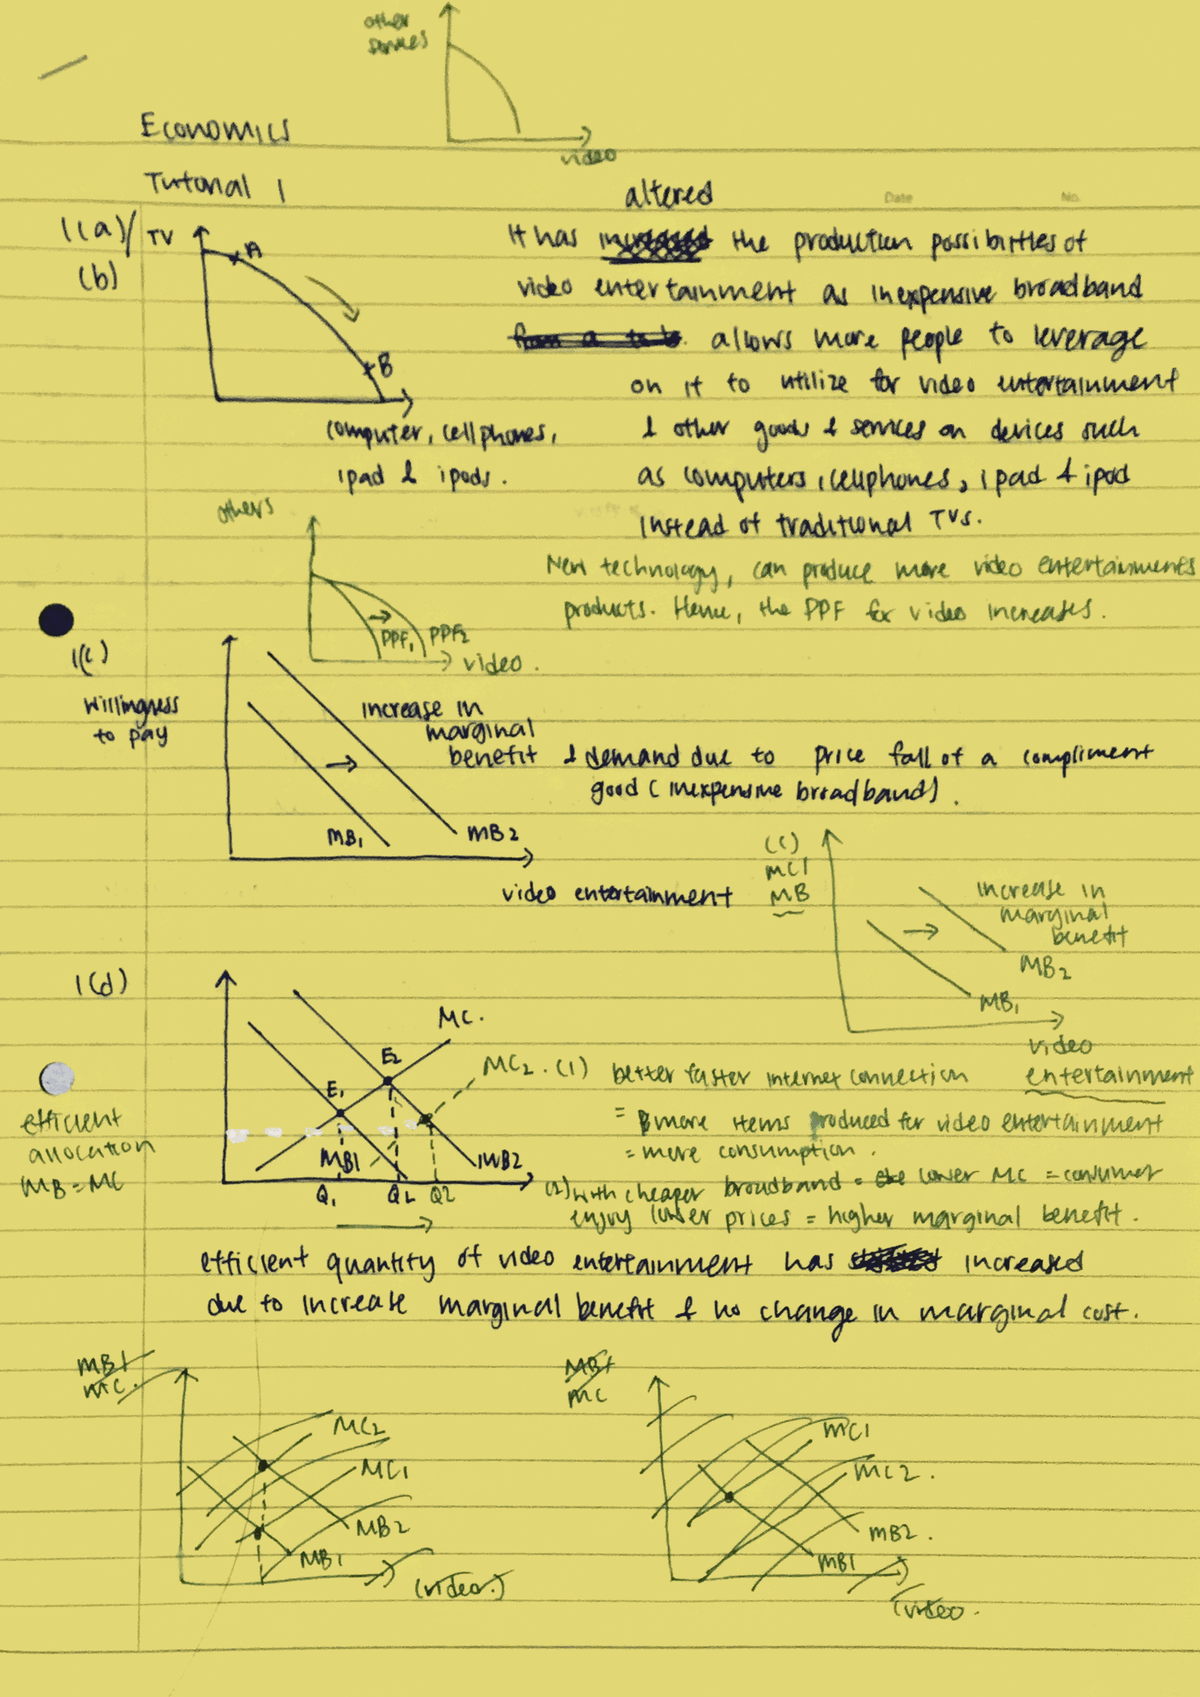 other
services
video
Economics
Tutorial 1
Date
No.
altered
1(a)/
(b)
TV
A
B
computer, cellphones,
ipad & ipods.
It has the production possibilities of
video entertainment as inexpensive broadband
allows more people to leverage
on it to utilize for video entertainment
& other goods & services on devices such
as computers, cellphones, ipad & ipod
instead of traditional TVs.
others
PPF1
PPF2
video.
New technology, can produce more video entertainments
products. Hence, the PPF for video increases.
1(c)
willingness
to pay
increase in
marginal
benefit & demand due to price fall of a compliment
good (inexpensive broadband).
MB1
MB2
video entertainment
(c)
MC/
MB
increase in
marginal
benefit
MB2
MB1
video
entertainment
1(d)
MC.
E2
E1
MC2.
MB1
MB2
Q1
Q2
Q2
efficient
allocation
MB = MC
(1) better faster internet connection
= more items produced for video entertainment
= more consumption.
(2) with cheaper broadband = lower MC = consumer
enjoy lower prices = higher marginal benefit.
efficient quantity of video entertainment has increased
due to increase marginal benefit & no change in marginal cost.
MB/
MC.
MC2
MC1
MB2
MB1
(video.)
MB/
MC
MC1
MC2.
MB2.
MB1
(video.